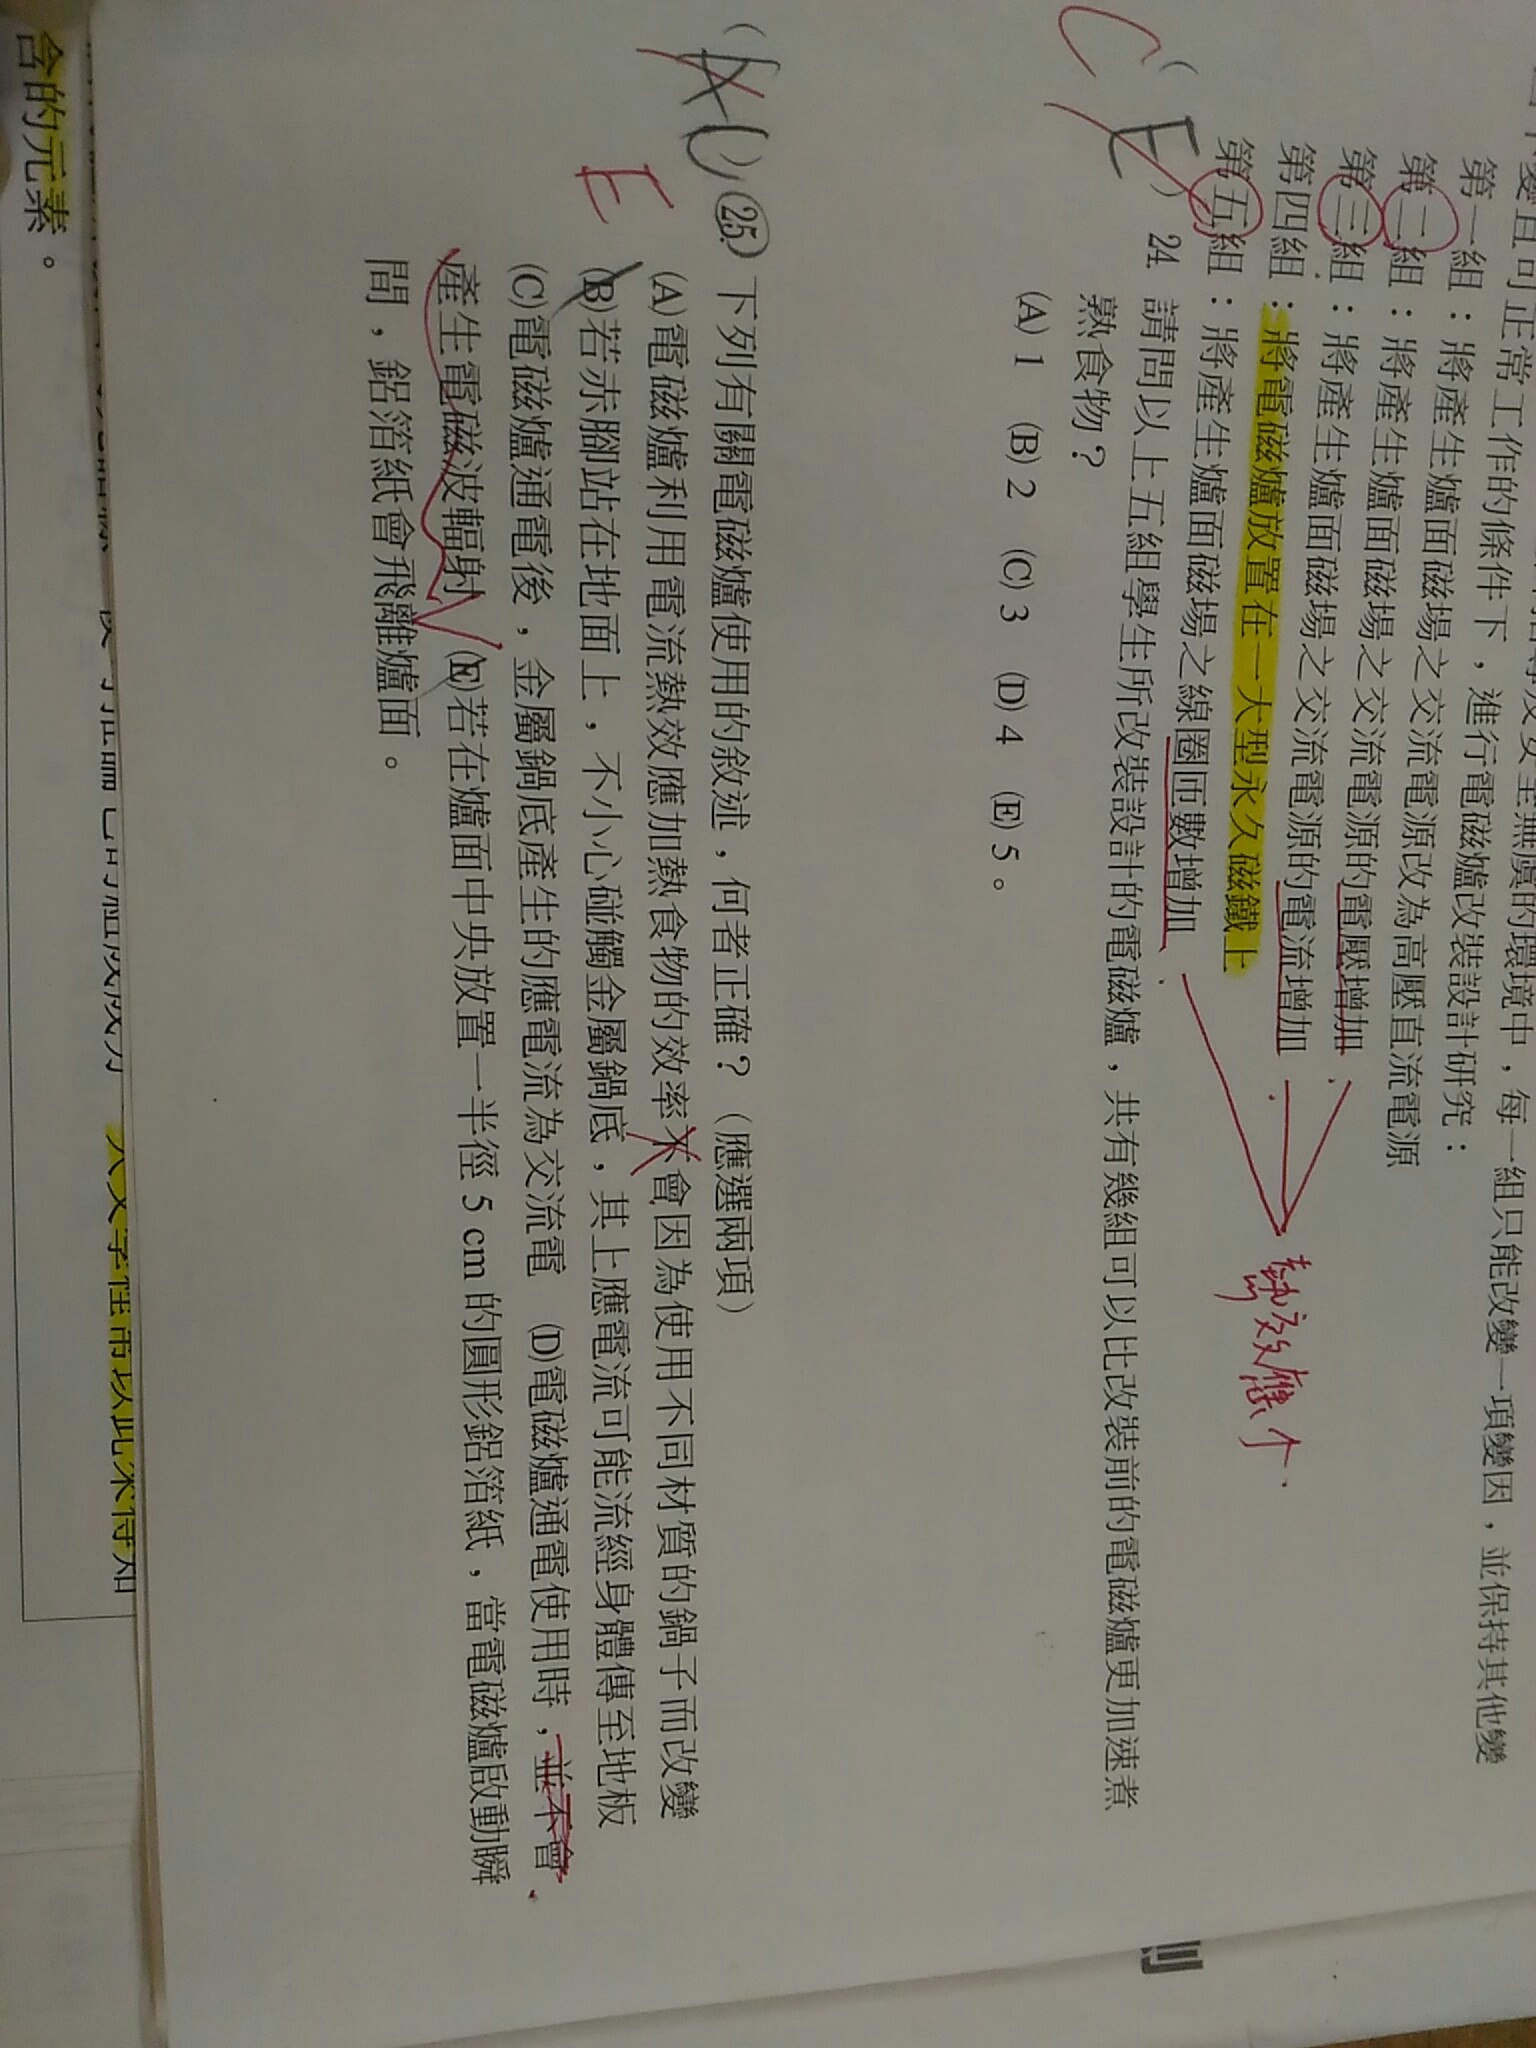 變且可正常工作的條件下,進行電磁爐改裝設計研究:
第一組:將產生爐面磁場之交流電源改為高壓直流電源
第二組:將產生爐面磁場之交流電源的電壓增加
第三組:將產生爐面磁場之交流電源的電流增加
第四組:將電磁爐放置在一大型永久磁鐵上
第五組:將產生爐面磁場之線圈匝數增加
熱效應↑
C
(E) 24. 請問以上五組學生所改裝設計的電磁爐,共有幾組可以比改裝前的電磁爐更加速煮
熟食物?
(A) 1 (B) 2 (C) 3 (D) 4 (E) 5。
25. 下列有關電磁爐使用的敘述,何者正確?(應選兩項)
E
(A)電磁爐利用電流熱效應加熱食物的效率不會因為使用不同材質的鍋子而改變
(B)若赤腳站在地面上,不小心碰觸金屬鍋底,其上應電流可能流經身體傳至地板
(C)電磁爐通電後,金屬鍋底產生的應電流為交流電 (D)電磁爐通電使用時,並不會
產生電磁波輻射 (E)若在爐面中央放置一半徑 5 cm 的圓形鋁箔紙,當電磁爐啟動瞬
間,鋁箔紙會飛離爐面。
含的元素。